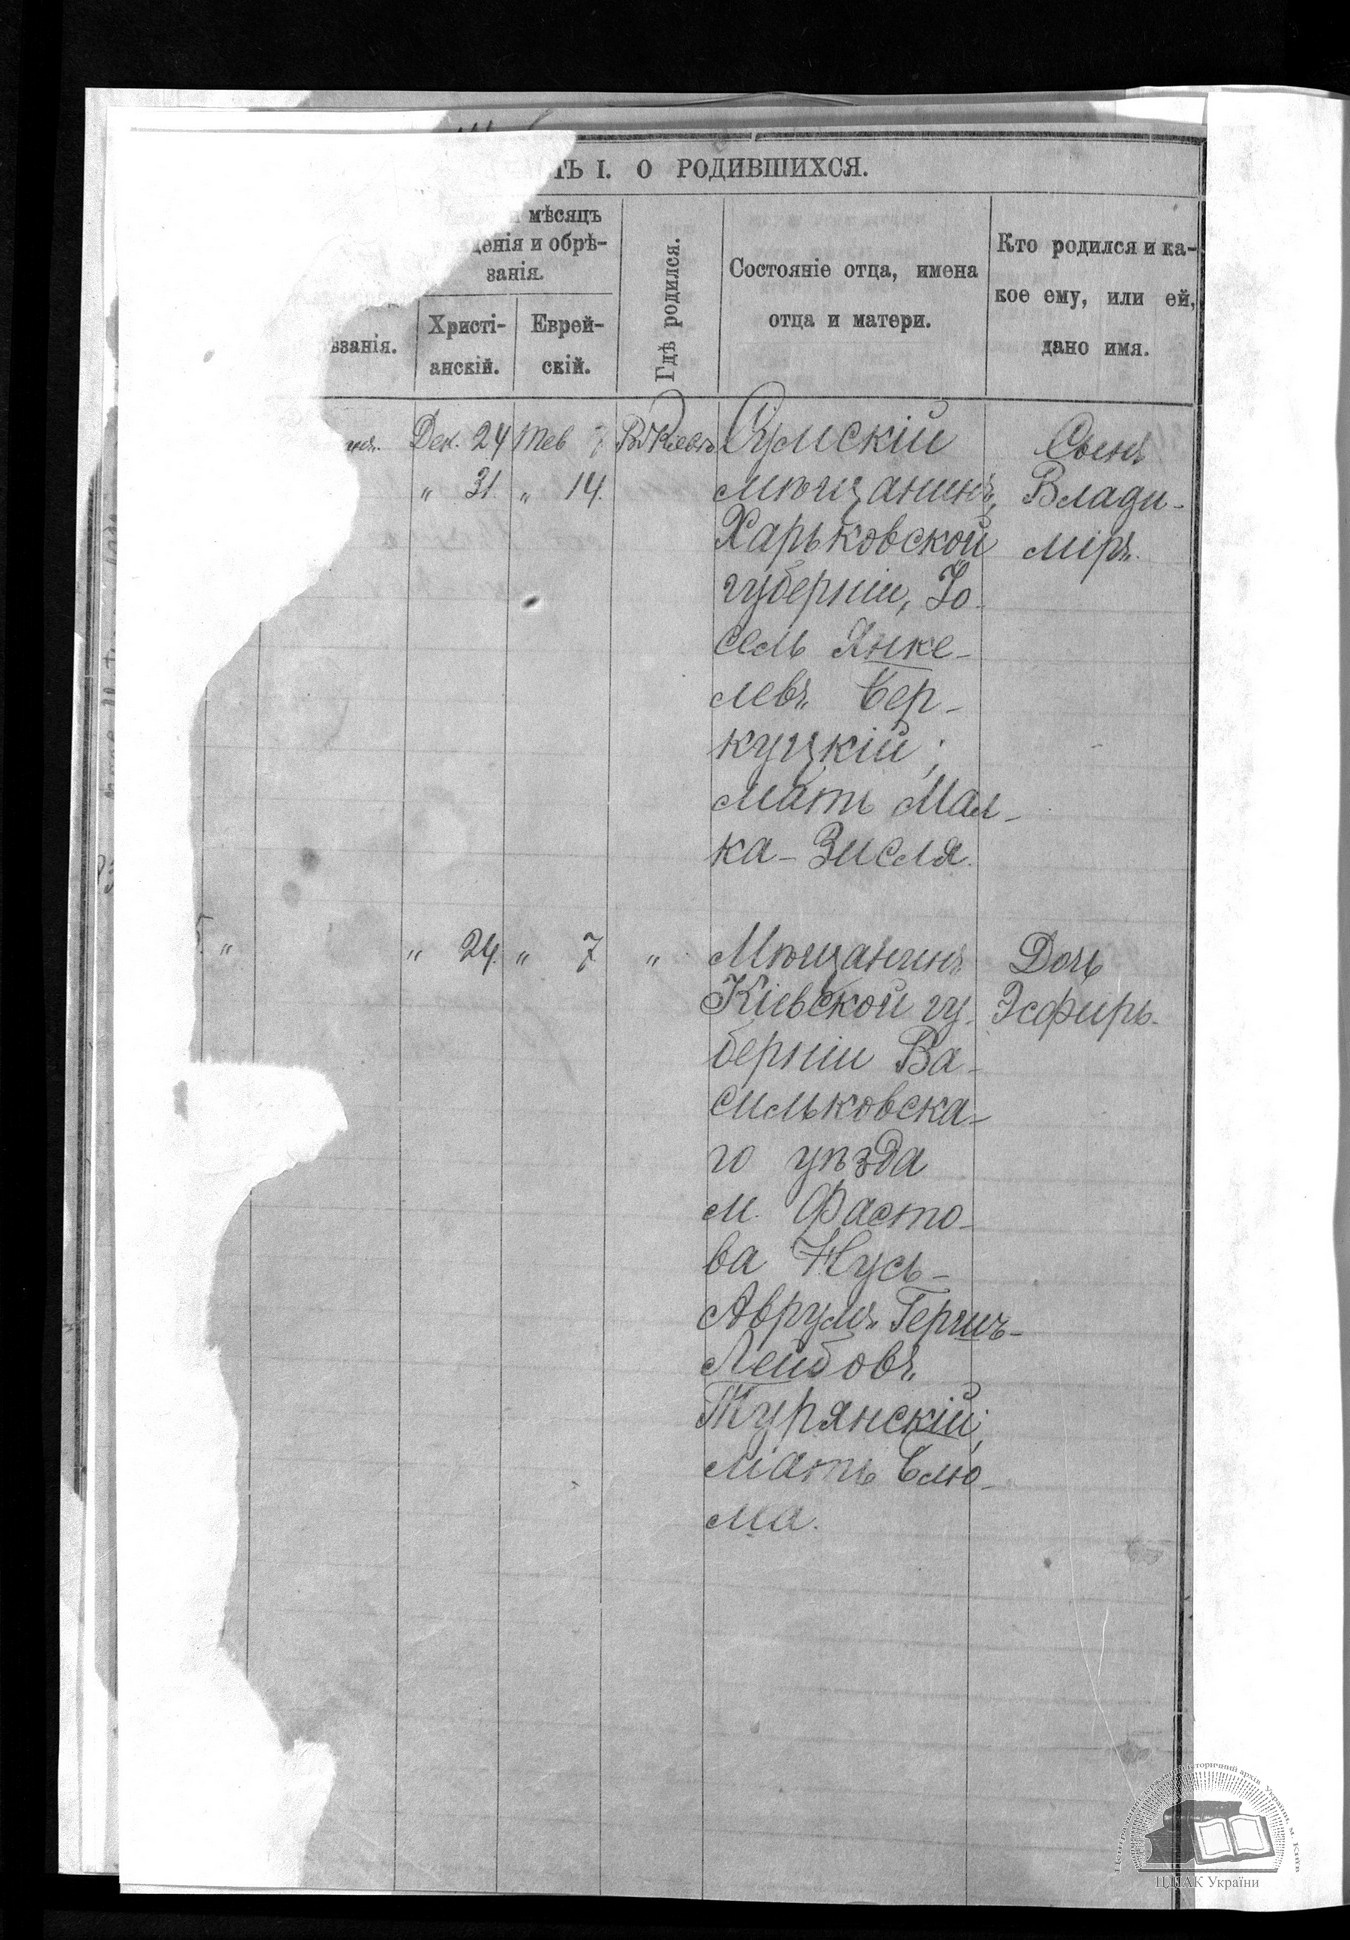 ТЬ I. О РОДИВШИХСЯ.
и мѣсяцъ
денія и обрѣ-
занія.
ѣзанія.
Христі-
анскій.
Еврей-
скій.
Гдѣ родился.
Состояніе отца, имена
отца и матери.
Кто родился и ка-
кое ему, или ей,
дано имя.
Дек. 24 Тев 7 Въ Кіевѣ
" 31. " 14.
Сумскій
мѣщанинъ,
Харьковской
губерніи, Іо-
сель Янке-
левъ Бер-
куцкій;
мать Мал-
ка-Зисля.
Сынъ
Влади-
міръ.
" " 24. " 7 "
Мѣщанинъ
Кіевской гу-
берніи Ва-
сильковска-
го уѣзда
м. Фасто-
ва Нусь-
Аврумъ Гершъ-
Лейбовъ
Турянскій;
мать Блю-
ма.
Дочь
Эсфирь.
Центральний державний історичний архів України, м. Київ
ЦДІАК України